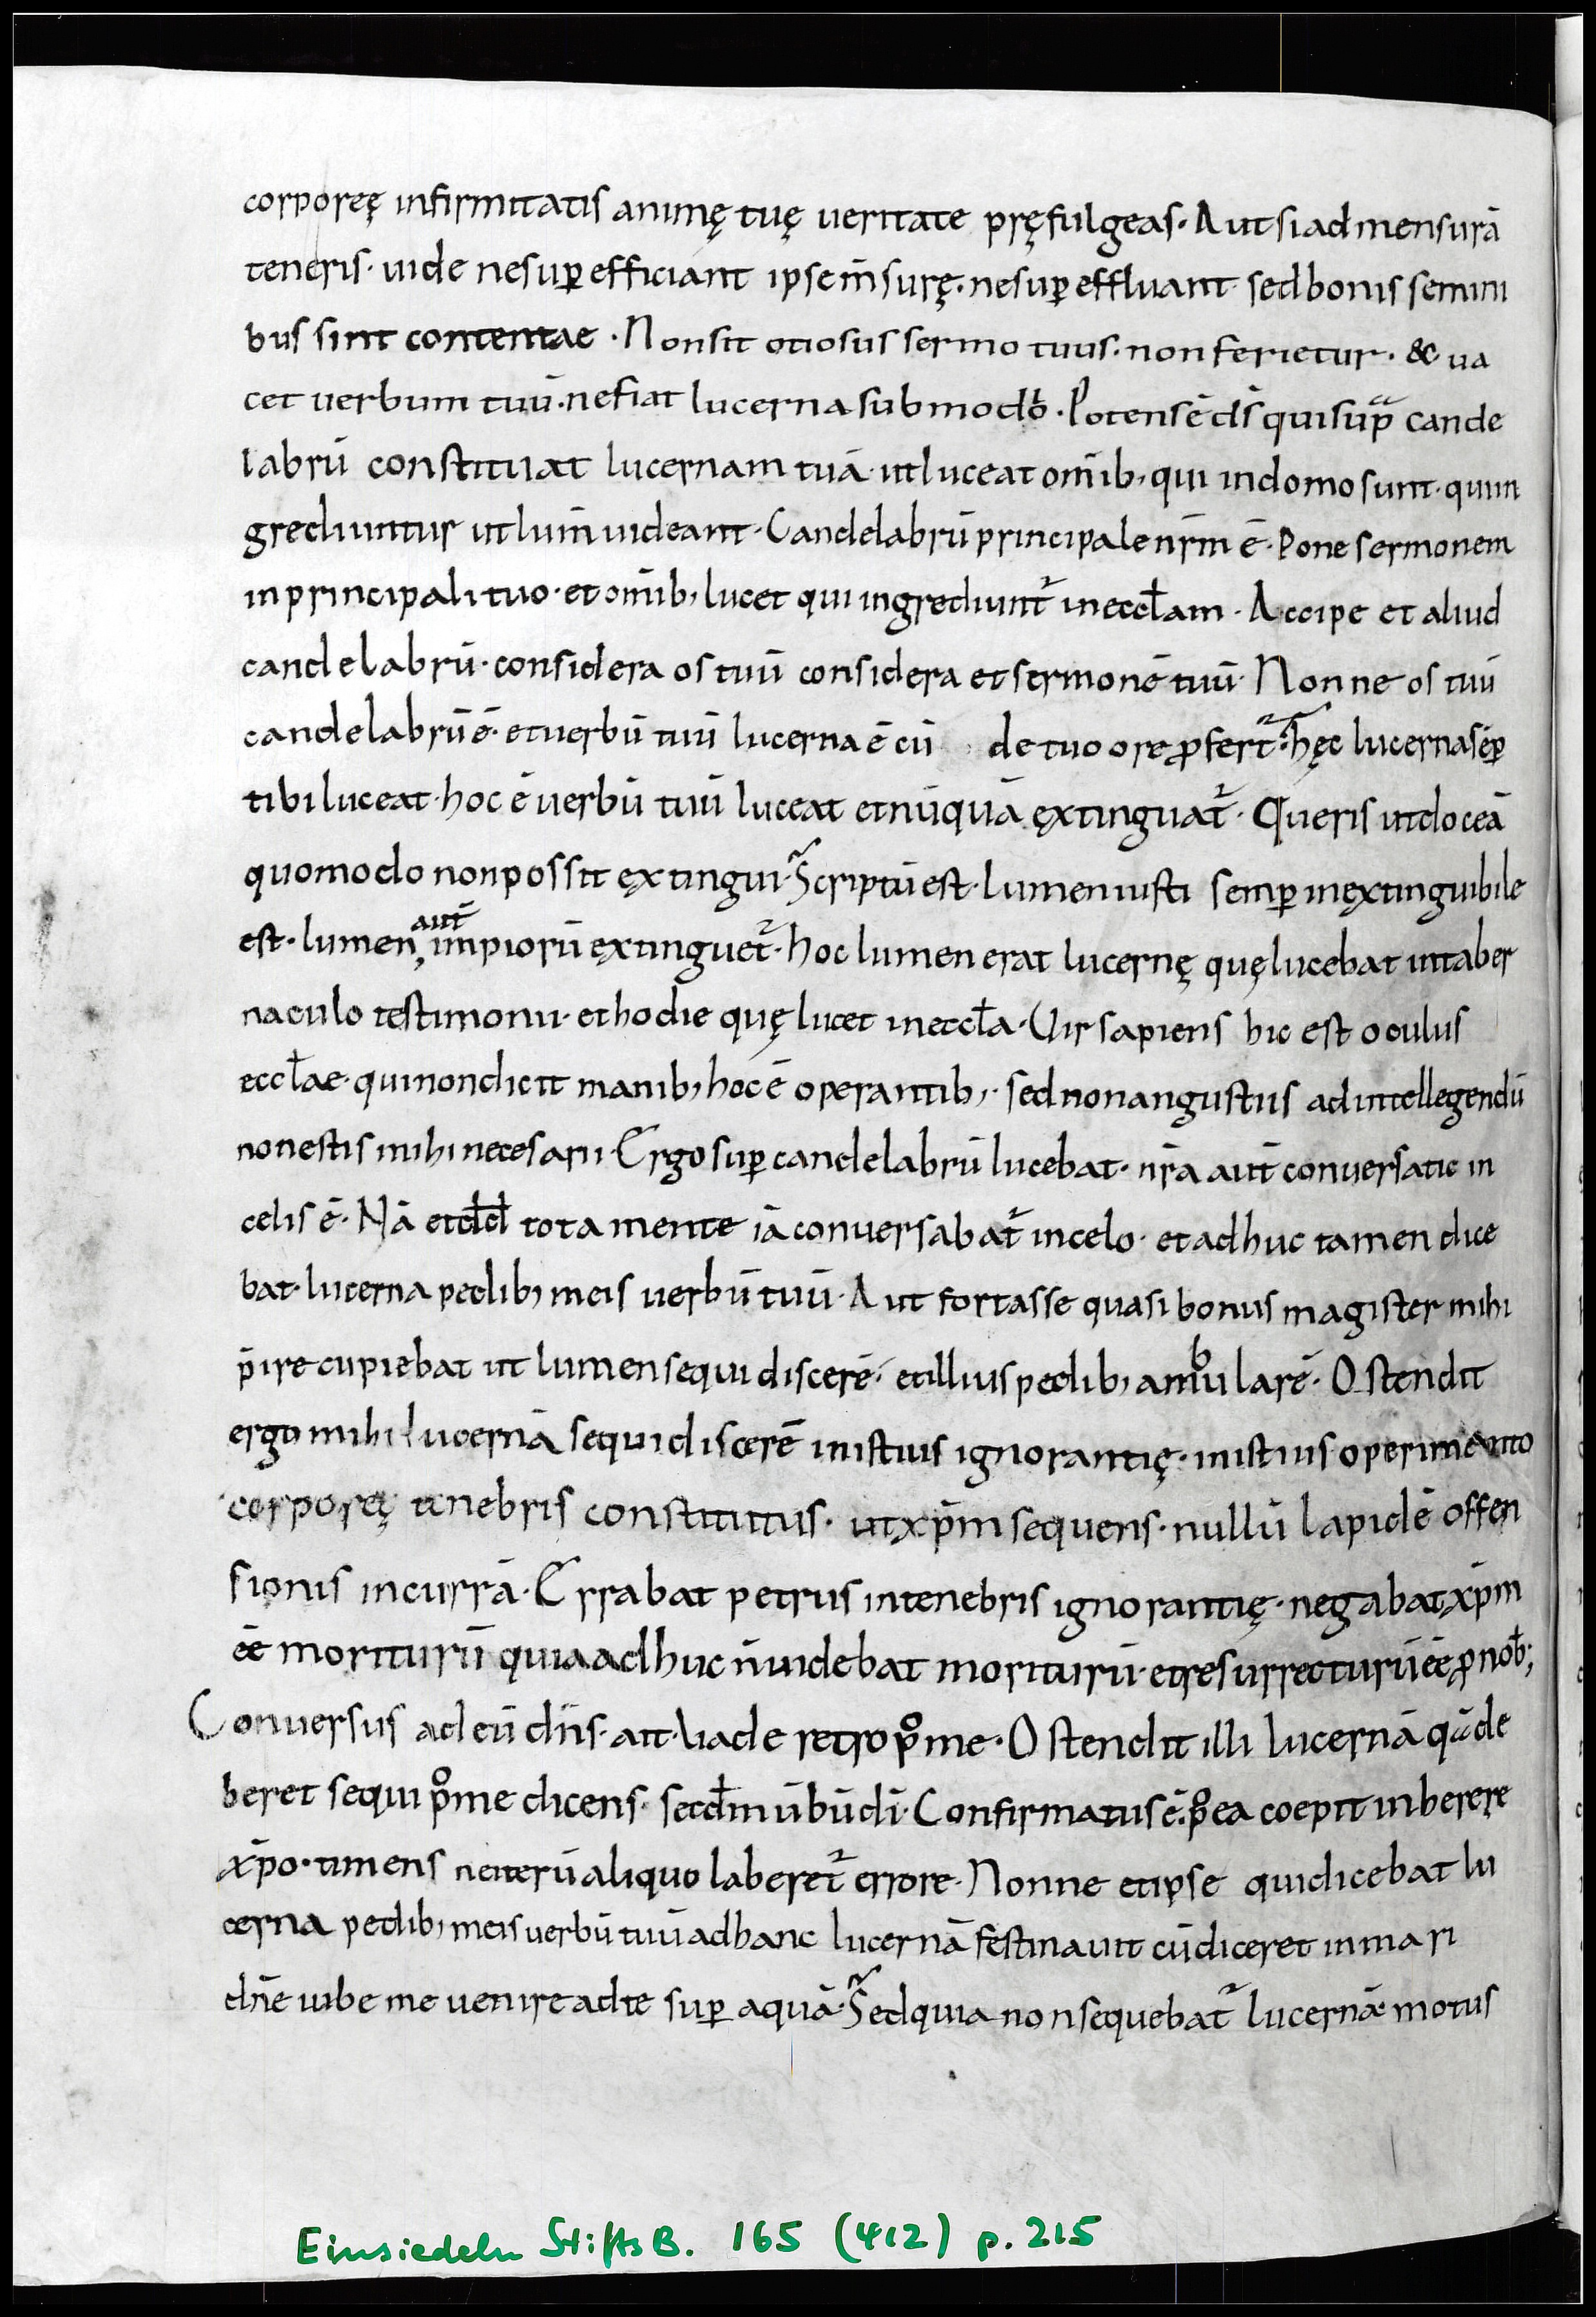 corporeę infirmitatis animę tuę ueritate pręfulgeas· Aut si ad mensurā
teneris· uide ne sup̱ efficiant ipse m̄surę· ne sup̱ effluant sed bonis semini
bus sint contentae · Non sit otiosus sermo tuus· non ferietur · & ua
cet uerbum tuū· ne fiat lucerna sub modiō · Potens ē d̄s qui sup̄ cande
labrū constituat lucernam tuā· ut luceat om̄ib; qui in domo sunt· qui in
grediuntur ut lum̄ uideant· Candelabrū principale nr̄m ē· Pone sermonem
in principali tuo· et om̄ib; lucet qui ingrediunt̄ in eccl̄am · Accipe et aliud
candelabrū· considera os tuū considera et sermonē tuū· Nonne os tuū
candelabrū ē· et uerbū tuū lucerna ē cū de tuo ore ꝓfert̄· hęc lucerna sēp̱
tibi luceat· hoc ē uerbū tuū luceat et nūquā ęxtinguat̄· Queris ut doceā
quomodo non possit ęxtingui· Scriptū est· lumen iusti semp̱ inęxtinguibile
est· lumen aut̄ impiorū ęxtinguet̄· hoc lumen erat lucernę quę lucebat in taber
naculo testimonii· et hodie quę lucet in eccl̄a· Uir sapiens hic est oculus
eccl̄ae· qui non dicit manib; hoc ē operantib;· sed non angustus ad intellegendū
non estis mihi necesarii· Ergo sup̱ candelabrū lucebat· nr̄a aut̄ conuersatio in
celis ē· Nā et dd̄ tota mente iā conuersabat̄ in celo· et adhuc tamen dice
bat· lucerna pedib; meis uerbū tuū· Aut fortasse quasi bonus magister mihi
p̄ire cupiebat ut lumen sequi discerē· et illius pedib; ambularē· Ostendit
ergo mihi lucernā sequi discerē in istius ignorantię· in istius operimento
corporeę tenebris constitutus· ut xp̄m sequens· nullū lapidē offen
sionis incurrā· Errabat petrus in tenebris ignorantię· negabat xp̄m
ēē moriturū quia adhuc n̄ uidebat moriturū· et resurrecturū ēē ꝓ nob̄;
Conuersus ad eū dn̄s· ait· Uade retro p̊ me· Ostendit illi lucernā quā de
beret sequi p̊ me dicens· secd̄m ūbū dī· Confirmatus ē· p̊ ea coepit inherere
xp̄o· timens ne iterū aliquo laberet̄ errore· Nonne et ipse qui dicebat lu
cerna pedib; meis uerbū tuū ad hanc lucernā festinauit cū diceret in mari
dn̄e iube me uenire ad te sup̱ aquā· Sed quia non sequebat̄ lucernā motus
Einsiedeln StiftsB. 165 (412) p. 215